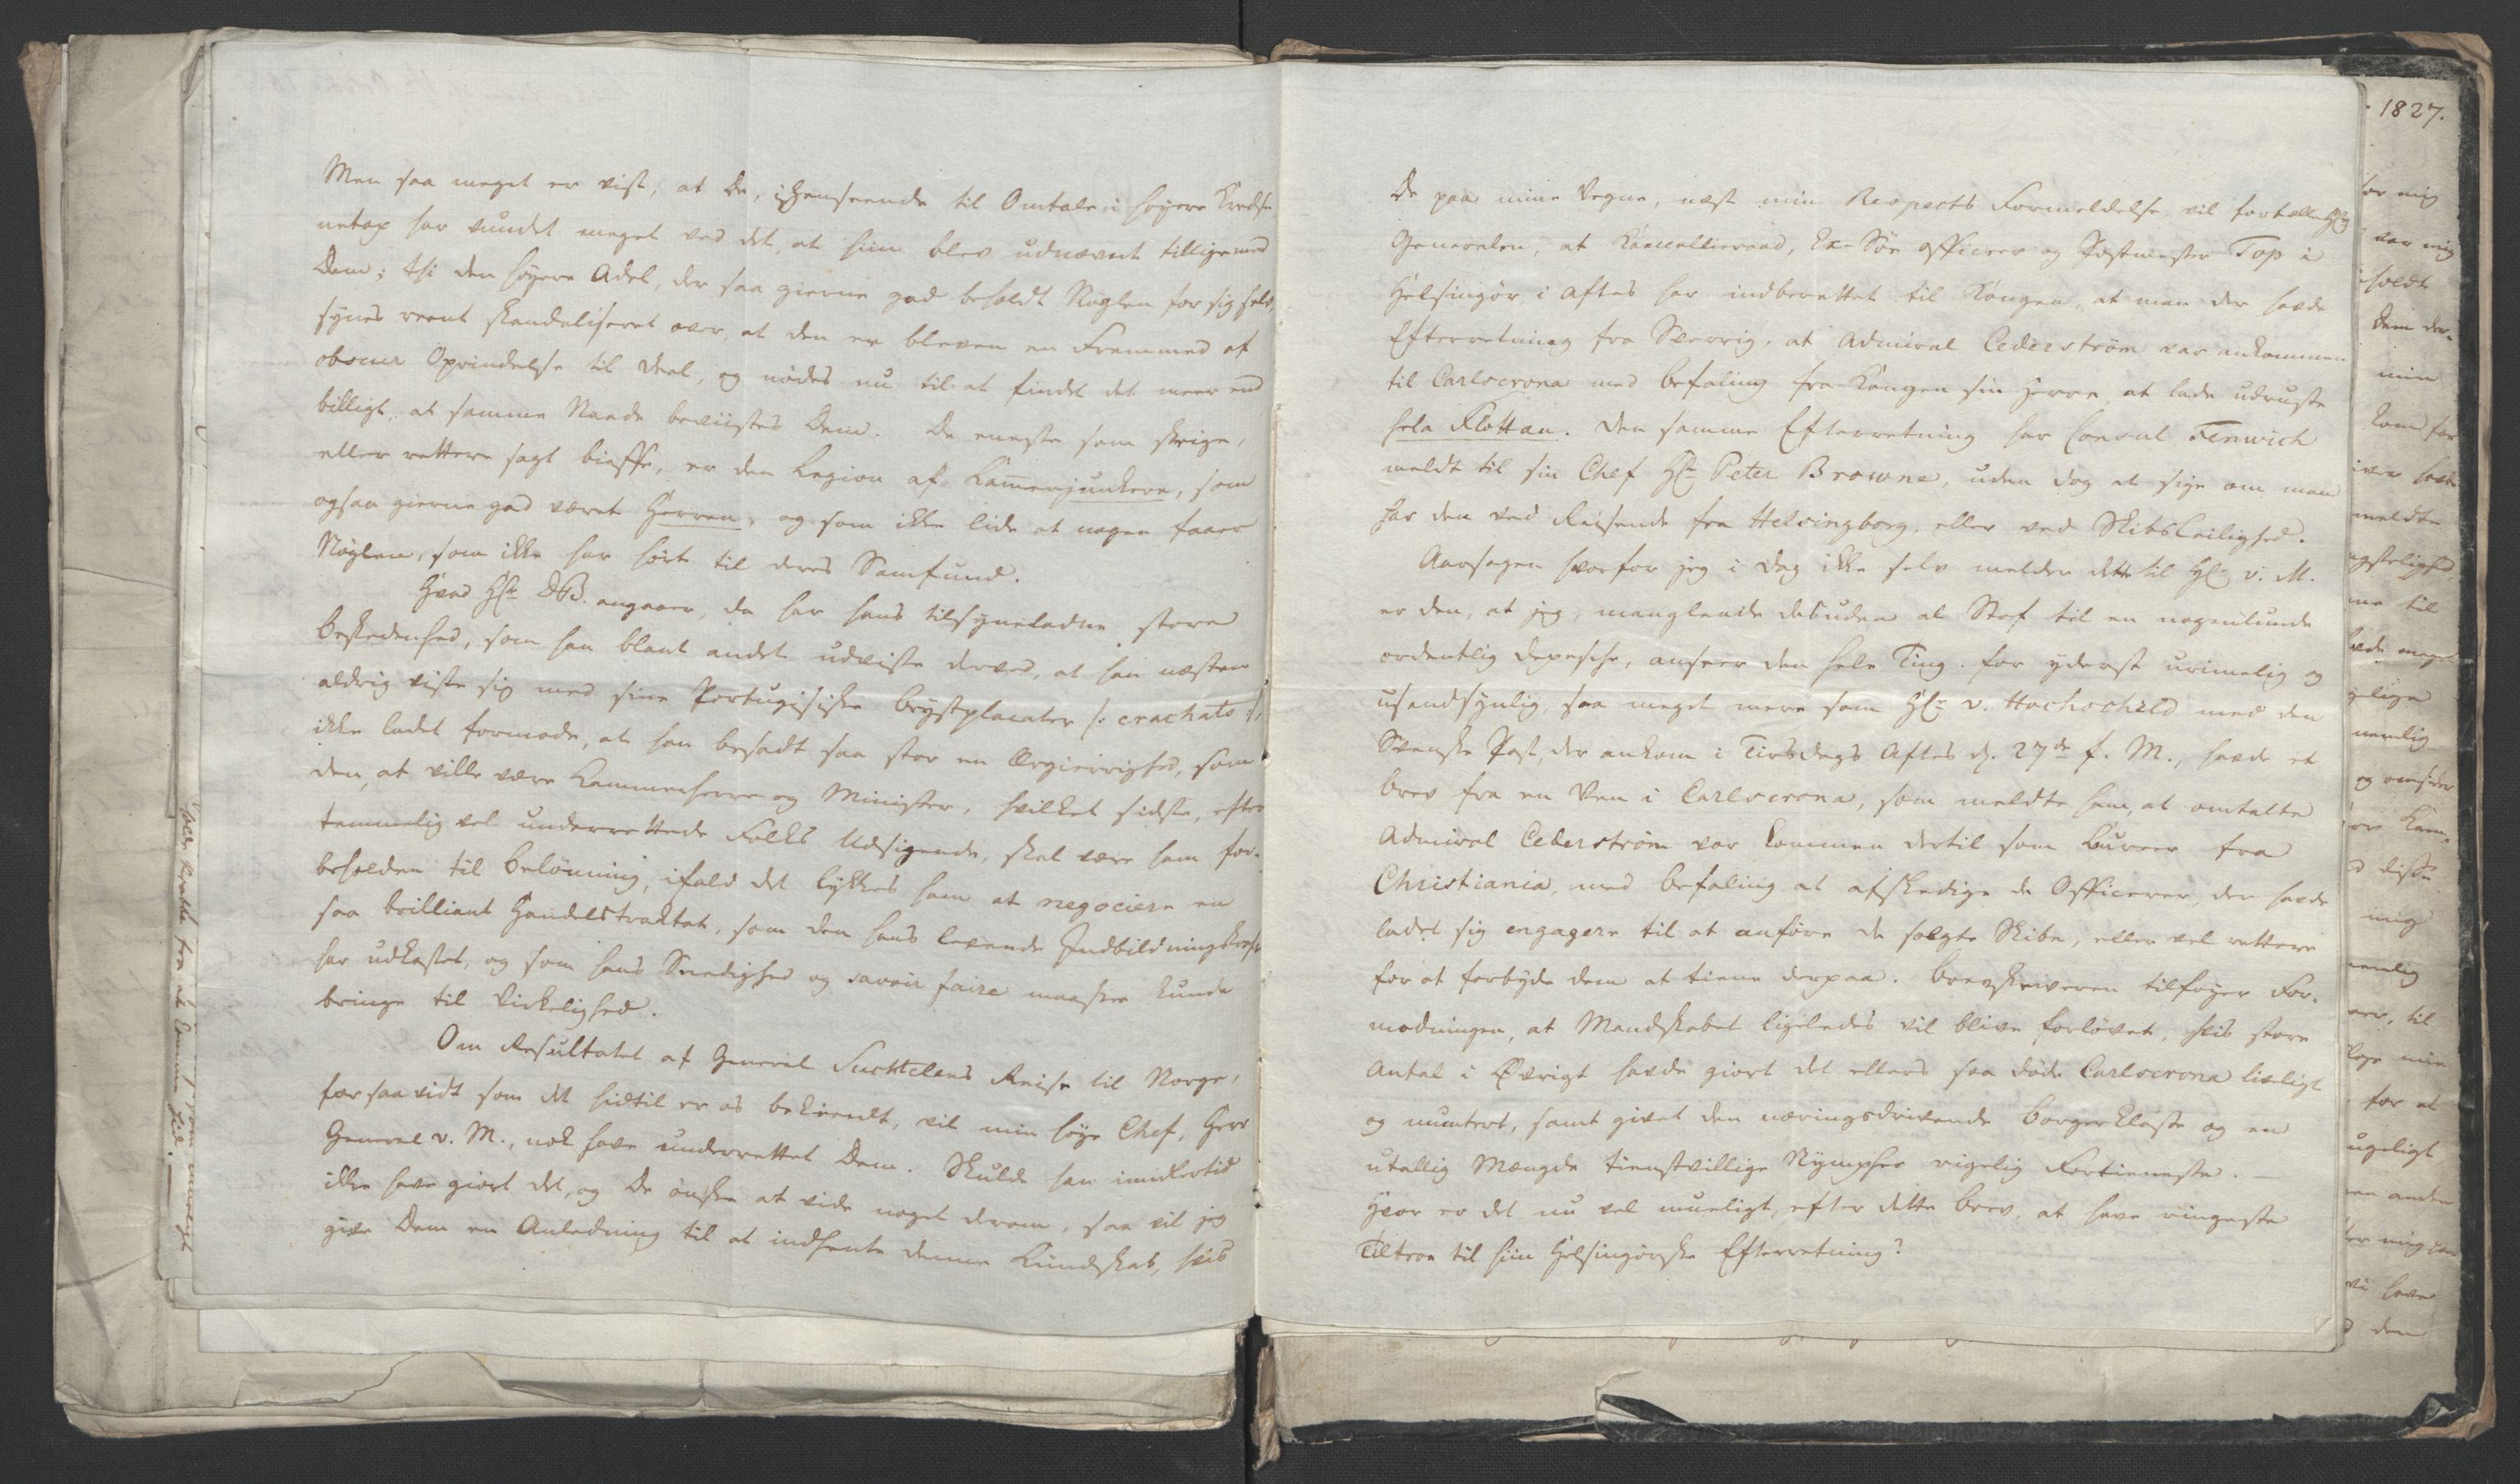 Men saa meget er vist, at De, i Henseende til Omtale i høyere Kredse,
netop har vundet meget ved det, at hiin blev udnævnt tilligemed
Dem; thi den høyere Adel, der saa gierne gad beholdt Nøglen for sig selv,
synes reent skandaliseret over, at den er bleven en Fremmed af
obscur Oprindelse til Deel, og nødes nu til at findet det meer end
billigt, at samme Naade beviistes Dem. De eneste som skrige,
eller rettere sagt bieffe, er den Legion af Kammerjunkere, som
ogsaa gierne gad været Herren, og som ikke lide at nogen faaer
Nøglen, som ikke har hørt til deres Samfund.
Hvad Hr DB. angaaer, da har hans tilsyneladne store
Beskedenhed, som han blant andet udviste derved, at han næsten
aldrig viste sig med sine Portugisiske Brystplacater /: crachats :/,
ikke ladet formode, at han besadt saa stor en Ærgierrighed, som
den, at ville være Kammerherre og Minister, hvilket sidste, efter
temmelig vel underrettede Folks Udsigende, skal være ham for-
beholden til Belönning, ifald det lykkes ham at negociere en
saa brilliant Handelstraktat, som den hans levende Indbildningskraft
har udkastet, og som hans Snedighed og savoir faire maaskee kunde
bringe til Virkelighed.
Om Resultatet af General Suchtelens Reise til Norge,
forsaavidt som det hidtil er os bekiendt, vil min høye Chef, Herr
General v. M., nok have underrettet Dem. Skulde han imidlertid
ikke have giort det, og De ønske at vide noget derom, saa vil jeg
give Dem en Anledning til at indhente denne Kundskab, hvis
De paa mine Vegne, næst min Respects Formeldelse vil fortælle Hr
Generalen, at Kancellieraad, Ex-Söe Officeer og Postmester Top i
Helsingör, i Aftes har indberettet til Kongen, at man der havde
Efterretning fra Sverrig, at Admiral Cederström var ankommen
til Carlscrona med Befaling fra Kongen sin Herre, at lade udruste
hela Flottan. Den samme Efterretning har Consul Fenwich
meldt til sin Chef Hr Peter Browne, uden dog at sige om man
har den ved Reisende fra Helsingborg, eller ved Skibsleilighed.
Aarsagen hvorfor jeg i Dag ikke selv melder dette til Hr v. M.
er den, at jeg, manglende desuden al Stof til en nogenlunde
ordentlig Depesche, anseer den hele Ting for yderst urimelig og
usandsynlig, saa meget mere som Hr v. Hochschild med den
Svenske Post, der ankom i Tirsdags Aftes d. 27de f. M., havde et
Brev fra en Ven i Carlscrona, som meldte ham, at omtalte
Admiral Cederström var kommen dertil som Coureer fra
Christiania, med Befaling at afskedige de Officerer, der havde
ladet sig engagere til at anføre de solgte Skibe, eller vel rettere
for at forbyde dem at tiene derpaa. Brevskriveren tilføyer For-
modningen, at Mandskabet ligeledes vil blive forlövet, hvis store
Antal i Øvrigt havde giort det ellers saa döde Carlscrona livligt
og muntert, samt givet den næringsdrivende Borgerklasse og en
utallig Mængde tienstvillige Nympher rigelig Fortieneste. —
Hvor er det nu vel mueligt, efter dette Brev, at have ringeste
Tiltroe til hiin Helsingörske Efterretning?
1827.